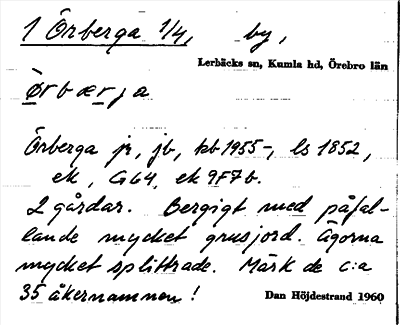 1 Örberga 1/4, by,
Lerbäcks sn, Kumla hd, Örebro län
Ørbærja
Örberga jr, jb, kb 1955-, ls 1852,
ek, G64, ek 9F7b.
2 gårdar. Bergigt med påfal-
lande mycket grusjord. Ägorna
mycket splittrade. Märk de c:a
35 åkernamnen!
Dan Höjdestrand 1960